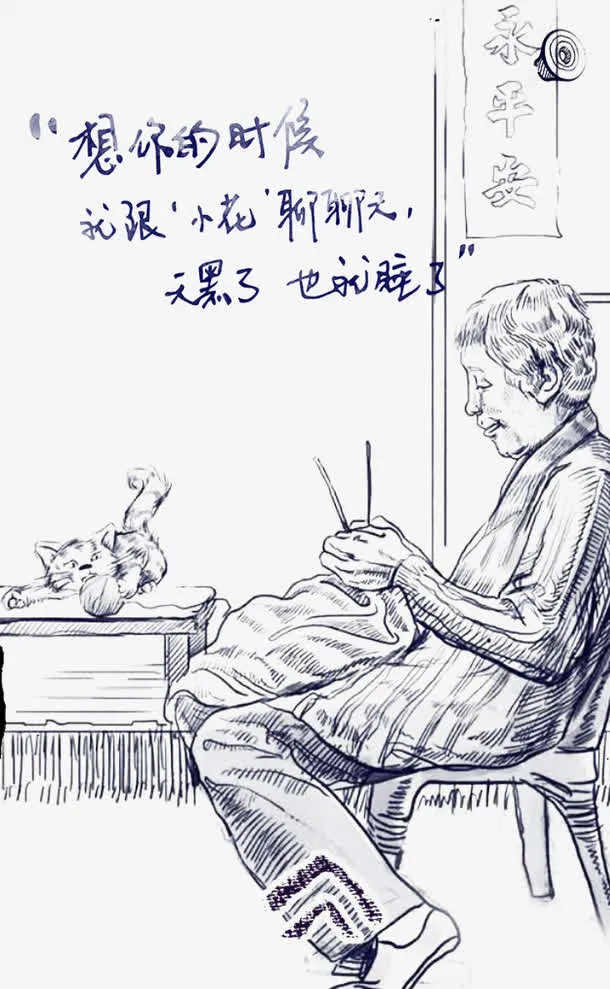 永平安
“想你的时候
就跟‘小花’聊聊天,
天黑了 也就睡了”